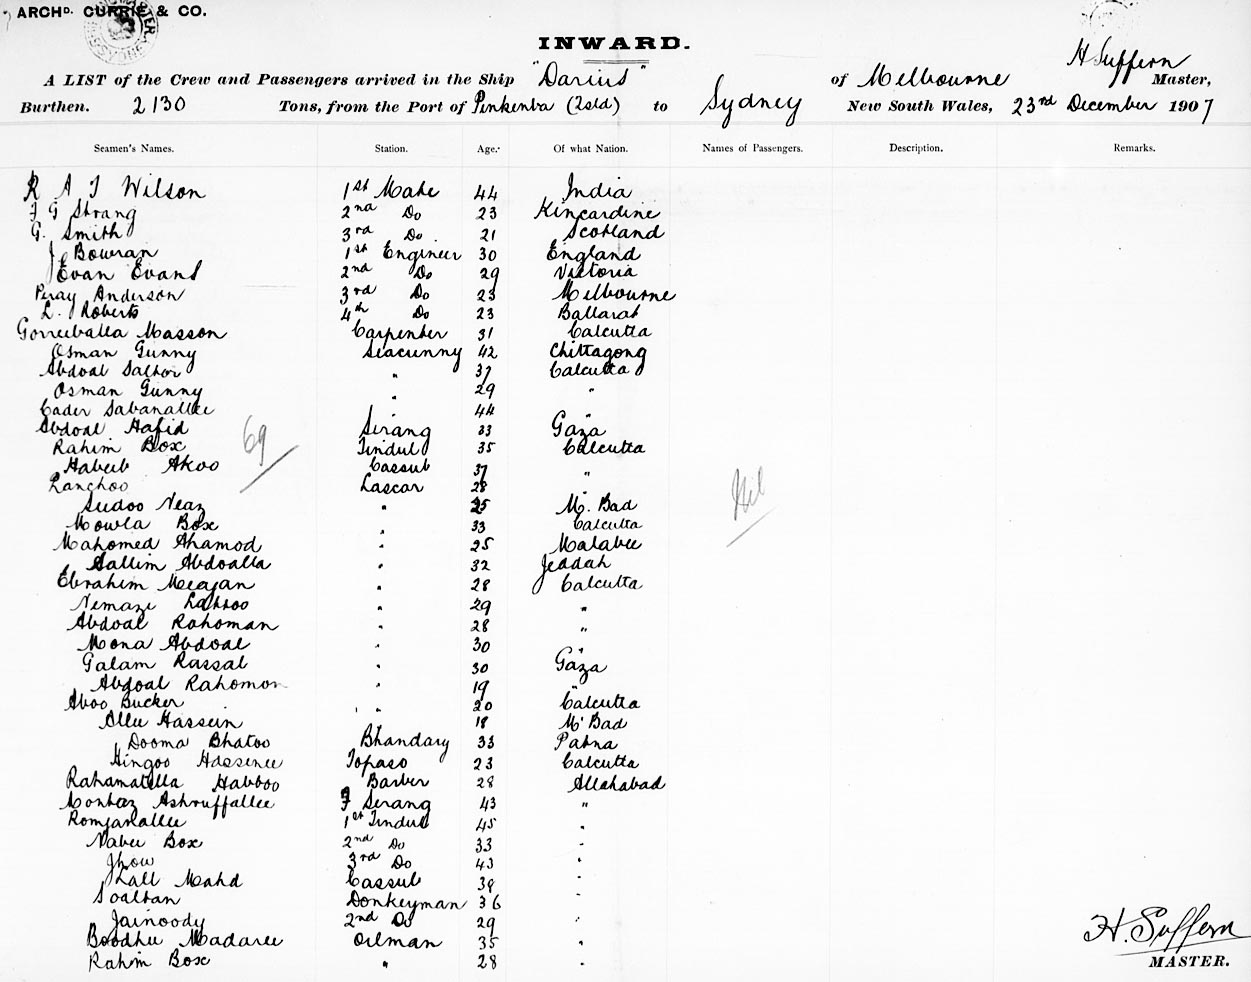 ARCHD. CURRIE & CO.
INWARD.
H Suffern
A LIST of the Crew and Passengers arrived in the Ship "Darius" of Melbourne Master,
Burthen. 2130 Tons, from the Port of Pinkenba (Qsld) to Sydney New South Wales, 23rd December 1907
Seamen's Names. Station. Age. Of what Nation. Names of Passengers. Description. Remarks.
R A J Wilson 1st Mate 44 India
F G Strang 2nd Do 23 Kincardine
G. Smith 3rd Do. 21 Scotland
J Bowran 1st Engineer 30 England
Evan Evans 2nd Do 29 Victoria
Percy Anderson 3rd Do 23 Melbourne
L. Roberts 4th Do 23 Ballarat
Gorreeballa Masson Carpenter 31 Calcutta
Osman Gunny Seacunny 42 Chittagong
Abdoal " 37 Calcutta
Osman Gunny " 29 "
Cader Sabanallee " 44 "
Abdoal Hafid Serang 33 Gaza
Rahim Box Tindul 35 Calcutta
69
Habeeb Akoo Cassub 37 "
Ranchoo Lascar 28 "
Nil
Sudoo Neaz " 25 M. Bad
Mowla Box " 33 Calcutta
Mahomed Ahamod " 25 Malabee
Sallim Abdoalla " 32 Jeddah
Ebrahim Meajan " 28 Calcutta
Nemaze " 29 "
Abdoal Rahoman " 28 "
Mona Abdoal " 30 "
Galam Rassal " 30 Gaza
Abdoal Rahomon " 19 "
Aboo Bucker " 20 Calcutta
Allee Hassein " 18 M' Bad
Dooma Bhatoo Bhandary 33 Patna
Hingoo Hossenee Topaso 23 Calcutta
Rahamatella Habboo Barber 28 Allahabad
Montaz Ashruffallee F Serang 43 "
Romjanallee 1st Tindul 45 "
Nabee Box 2nd Do 33 "
Jhow 3rd Do 43 "
Lall Mahd Cassub 38 "
Soaltan Donkeyman 36 "
Jainoody 2nd Do 29 "
Boodhu Madaree Oilman 35 "
Rahim Box " 28 "
H. Suffern
MASTER.